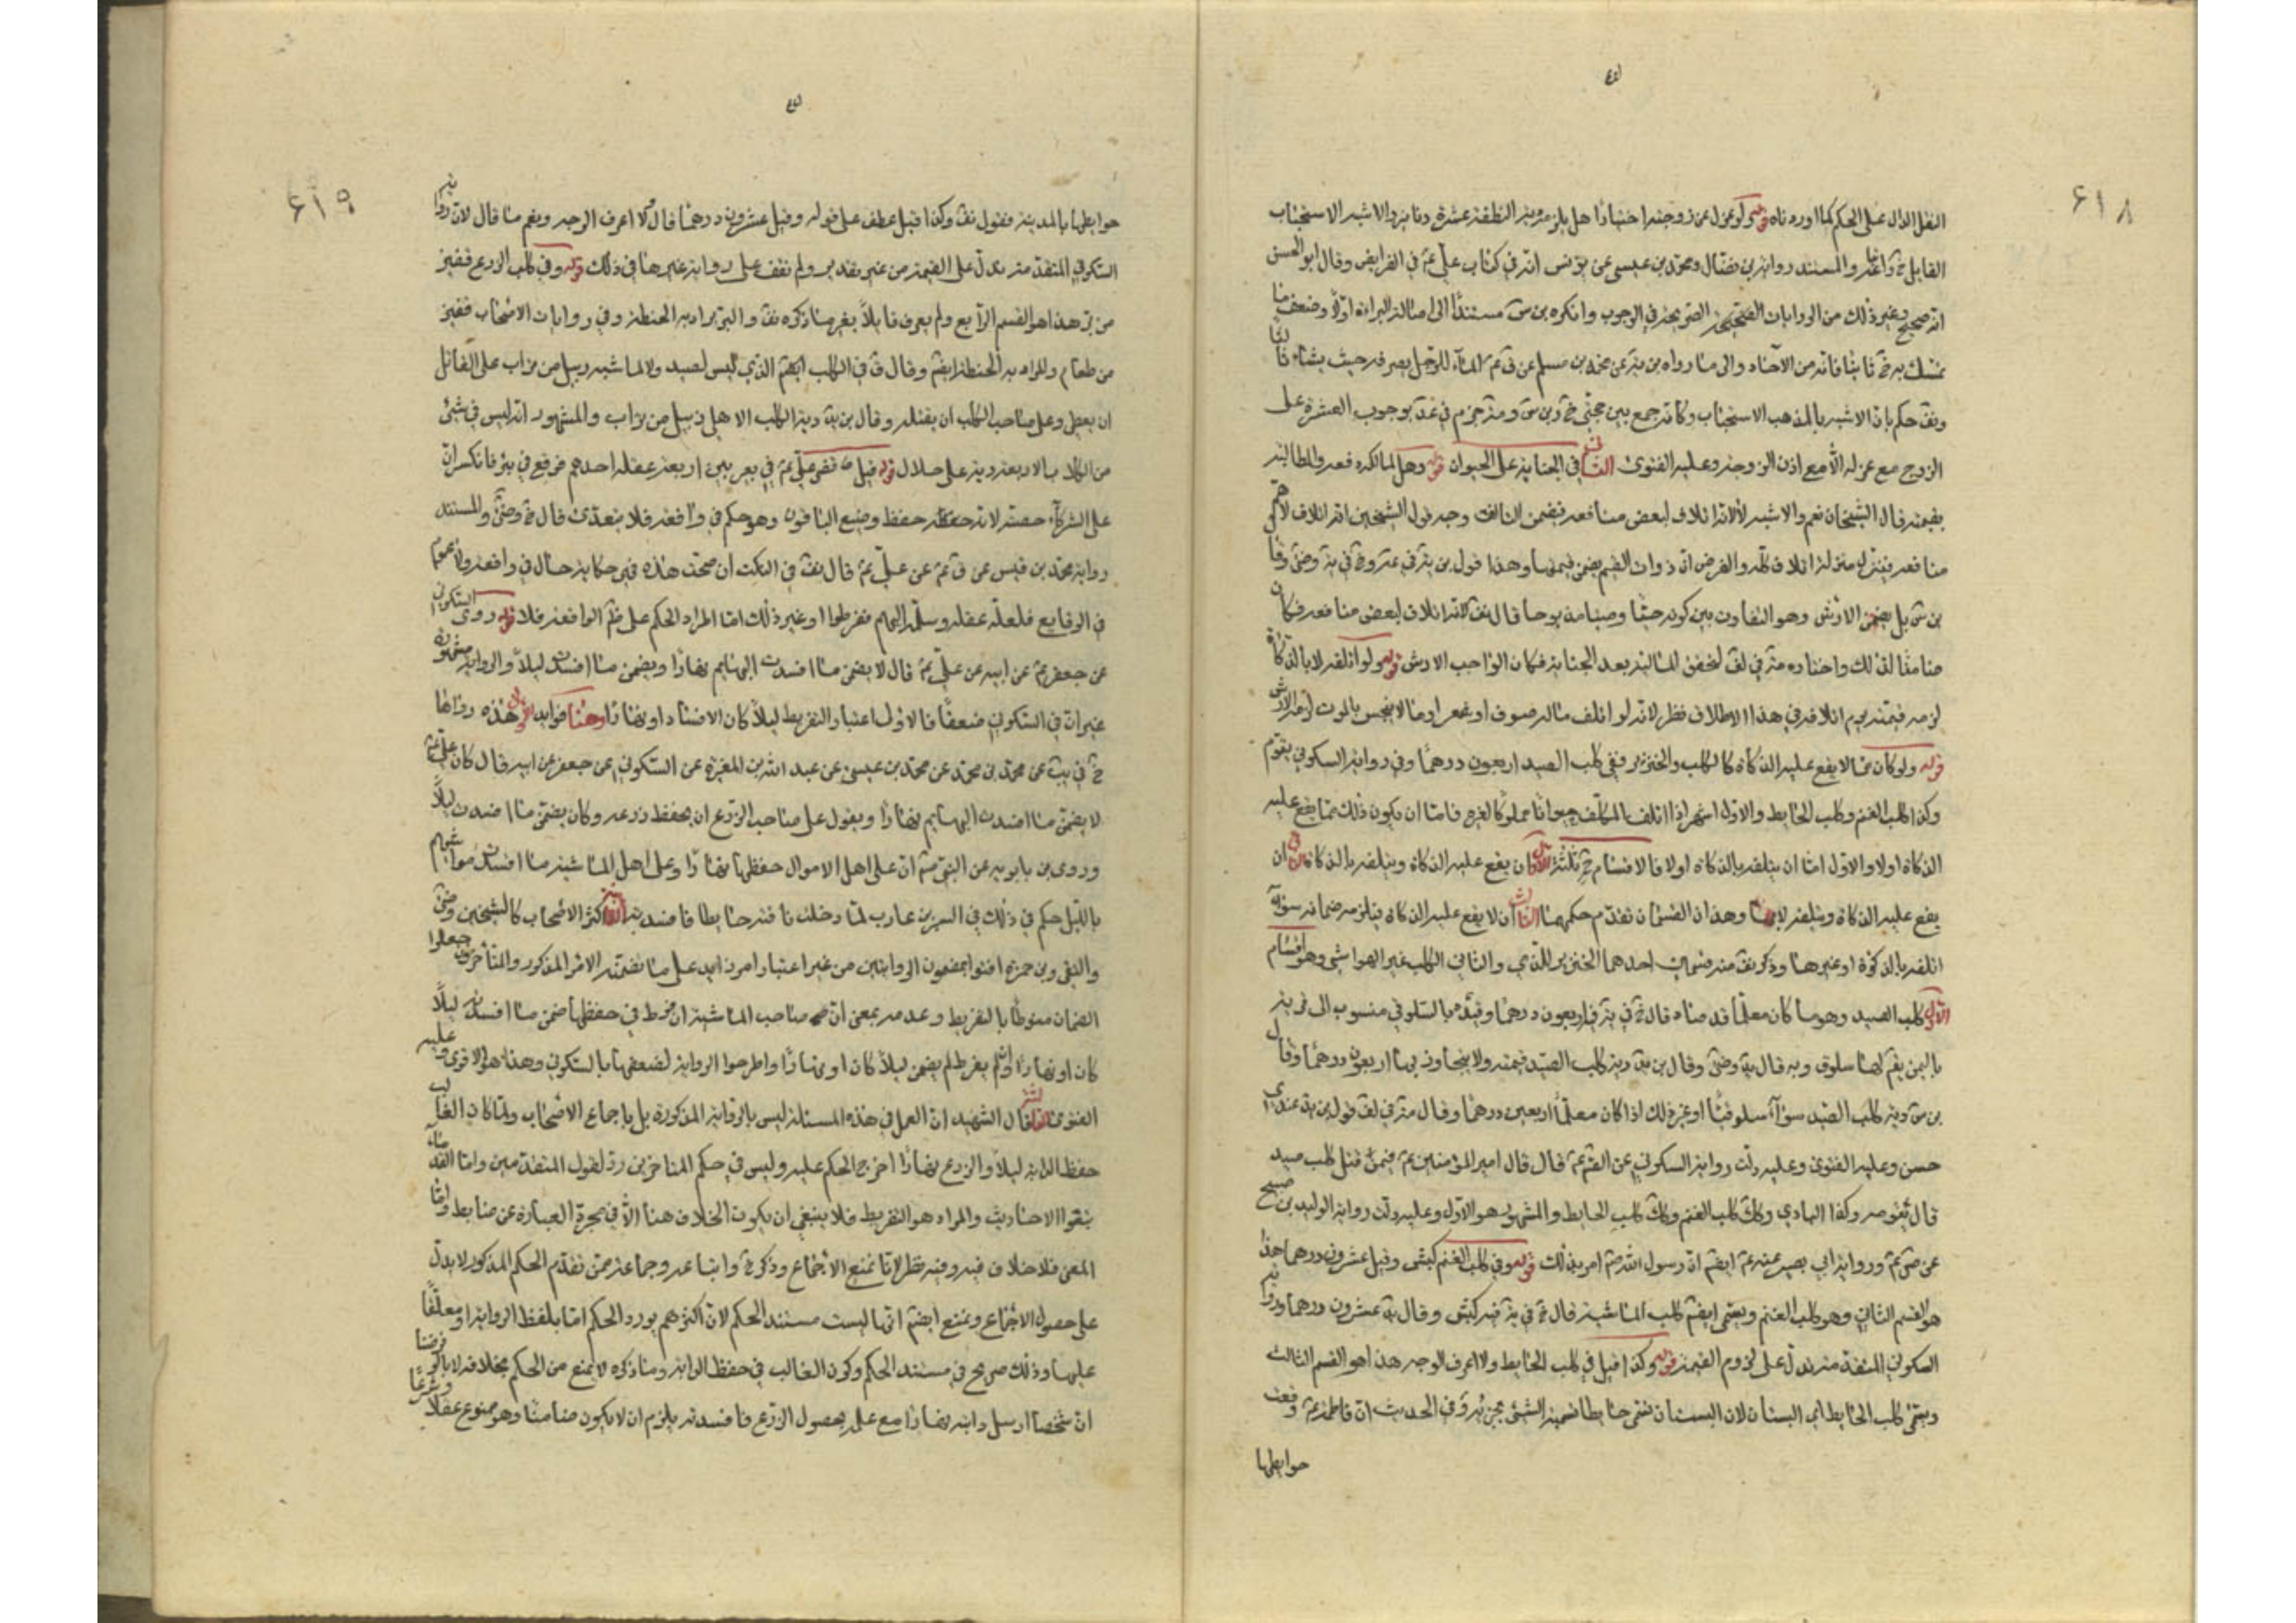 ٤٤
٦١٨
النقل الدال على الحكم كما اوردناه قوله ولو عزل عن زوجته اختيارا هل يلزمه دية النطفة عشرة دنانير والاشبه الاستحباب
القايل خ واتباعه والمستند رواية بن فضال ومحمد بن عيسى عن يونس انه في كتاب علي ع في الفرايض وقال ابو الحسن
انه صحيح وغير ذلك من الروايات الصحيحة الصريحة في الوجوب وانكره بن س مستندا الى اصالة البراءة اولا وضعف ما
تمسك به خ ثانيا فانه من الآحاد والى ما رواه بن يه عن محمد بن مسلم عن ق ع الماء للرجل يصرفه حيث يشاء
وبق حكم بان الاشبه بالمذهب الاستحباب وكانه جمع بين حجتي خ وبن س ومتر جزم في عد بوجوب العشرة على
الزوج مع عزله الا مع اذن الزوجة وعليه الفتوى الثاني في الجناية على الحيوان قوله وهل لمالكه دفعه والمطالبة
بقيمته قال الشيخان نعم والاشبه لا لانه اتلاف لبعض منافعه فيضمن التالف وجه قول الشيخين انه اتلاف لاهم
منافعه فينزل منزلة اتلاف كله والفرض ان ذوات القيم يضمن قيمتها وهذا قول بن يد في عه وخ في يه وضى وقا
بن س بل يضمن الارش وهو التفاوت بين كونه حيا وصيامذبوحا قال بق لانه اتلاف لبعض منافعه فكان
ضامنا لذلك واختاره متر في لف لتحقق المالية بعد الجناية فكان الواجب الارش قوله ولو اتلفه لا بالذكاة
لزمه قيمته يوم اتلافه في هذا الاطلاق نظر لانه لو اتلف ماله صوف او شعر او ما لا ينجس بالموت لزمه الارش
قوله ولو كان مما لا يقع عليه الذكاة كالكلب والخنزير ففي كلب الصيد اربعون درهما وفي رواية السكوني يقوم
وكذا كلب الغنم وكلب الحايط والاول اشهر اذا اتلف المكلف حيوانا مملوكا لغيره فاما ان يكون ذلك مما يقع عليه
الذكاة اولا والاول اما ان يتلفه بالذكاة اولا فالاقسام خ ثلثة الاول ان يقع عليه الذكاة ويتلفه بالذكاة الثاني ان
يقع عليه الذكاة ويتلفه لا بها وهذان القسمان تقدم حكمهما الثالث ان لا يقع عليه الذكاة فيلزمه ضمانه سواء
اتلفه بالذكوة او غيرها وذكر بق منه قسمين احدهما الخنزير للذمي والثاني الكلب غير الهواشي وهو اقسام
الاول كلب الصيد وهو ما كان معلما قد مناه قال خ في يه فيه اربعون درهما وقيده بالسلوقي منسوب الى قرية
باليمن يقم لها سلوق وبه قال يد وضى وقال بن يد دية كلب الصيد قيمته ولا يتجاوز بها اربعون درهما وقال
بن س دية كلب الصيد سواء سلوقيا او غير ذلك اذا كان معلما اربعين درهما وقال متر في لف قول بن يد عندي
حسن وعليه الفتوى وعليه دلت رواية السكوني عن الق ع قال قال امير المؤمنين ع فيمن قتل كلب صيد
قال يقومه وكذا البازي وكذلك كلب الغنم وكذلك كلب الحايط والمشهور هو الاول وعليه دلت رواية الوليد بن صبيح
عن ص ع ورواية ابي بصير عنه ع ايضم ان رسول الله ص امر بذلك قوله وفي كلب الغنم كبش وقيل عشرون درهما هذا
هو القسم الثاني وهو كلب الغنم ويسمى ايضم كلب الماشية قال خ في يه فيه كبش وقال يد عشرون درهما ورواية
السكوني المتقدمة تدل على لزوم القيمة قوله وكذا قيل في كلب الحايط ولا اعرف الوجه هذا هو القسم الثالث
ويسمى كلب الحايط اي البستان لان البستان تسمى حايطا تسمية الشئ بجزئه وفي الحديث ان فاطمة ع وقفت
حوابطها
٤٤
٦١٩
حوابطها بالمدينة فقول بق وكذا قيل عطف على قوله وقيل عشرون درهما قال لا اعرف الوجه ويقم منا قال لان رواية
السكوني المتقدمة تدل على القيمة من غير تقدير ولم نقف على رواية غيرها في ذلك قوله وفي كلب الزرع قفيز
من بر هذا هو القسم الرابع ولم يعرف قابلا بغير ما ذكره بق والبر يراد به الحنطة وفي روايات الاصحاب قفيز
من طعام والمراد به الحنطة ايضم وقال ق في الكلب ايضم الذي ليس لصيد ولا لماشية زبيل من تراب على القاتل
ان يعطي وعلى صاحب الكلب ان يقبله وقال بن يد دية الكلب الاهلي زبيل من تراب والمشهور انه ليس في شئ
من الكلاب بالاربعة دية على حلال قوله قيل قضى علي ع في بعير بين اربعة عقله احدهم فوقع في بئر فانكسر ان
على الشركاء حصته لانه حفظ وضيع الباقون وهو حكم في واقعة فلا يتعدى قال خ وضى والمستند
رواية محمد بن قيس عن ق ع عن علي ع قال بق في النكت ان صحت هذه فهي حكاية حال في واقعة ولا عموم
في الوقايع فلعله عقله وسلمه اليهم ففرطوا او غير ذلك اما المراد الحكم على ظم الواقعة فلا قوله روى السكوني
عن جعفر ع عن ابيه عن علي ع قال لا يضمن ما افسدت البهايم نهارا ويضمن ما افسدت ليلا والرواية مشهورة
غير ان في السكوني ضعفا فالاولى اعتبار التفريط ليلا كان الافساد او نهارا وهنا فوايد الاولى هذه رواها
خ في يب عن محمد بن محمد عن محمد بن عيسى عن عبد الله بن المغيرة عن السكوني عن جعفر عن ابيه قال كان علي ع
لا يضمن ما افسدت البهايم نهارا ويقول على صاحب الزرع ان يحفظ زرعه وكان يضمن ما افسدت ليلا
وروى بن بابويه عن النبي ص ان على اهل الاموال حفظها نهارا وعلى اهل الماشية ما افسدت مواشيهم
بالليل حكم في ذلك في البر بن عارب لما دخلت ناقته حايطا فافسدته الثانية اكثر الاصحاب كالشيخين وضى
والتقى وبن حمزة افتوا بمضمون الروايتين من غير اعتبار امر زايد على ما تضمنته الامر المذكور والمتأخرون جعلوا
الضمان منوطا بالتفريط وعدمه بمعنى ان صاحب الماشية ان فرط في حفظها ضمن ما افسدته ليلا
كان او نهارا وان لم يفرط لم يضمن ليلا كان او نهارا واطرحوا الرواية لضعفها بالسكوني وهذا هو الاقوى وعليه
الفتوى الثالثة قال الشهيد ان العمل في هذه المسئلة ليس بالرواية المذكورة بل باجماع الاصحاب ولما كان الغالب
حفظ الدابة ليلا والزرع نهارا اخرج الحكم عليه وليس في حكم المتاخرين رد لقول المتقدمين واما القدماء
تبعوا الاحاديث والمراد هو التفريط فلا ينبغي ان يكون الخلاف هنا الا في مجرد العبارة عن ضابط واما
المعنى فلا خلاف فيه وفيه نظر لانا نمنع الاجماع وذكر خ واتباعه وجماعة ممن تقدم الحكم المذكور لا يدل
على حصول الاجماع ونمنع ايضم انها ليست مستند الحكم لان اكثرهم يورد الحكم اما بلفظ الرواية او معلقا
عليها وذلك صريح في مستند الحكم وكون الغالب في حفظ الدابة وما ذكره لا يمنع من الحكم بخلافه لانا لو فرضنا
ان شخصا ارسل دابته نهارا مع علمه بحصول الزرع فافسدته يلزم ان لا يكون ضامنا وهو ممنوع عقلا وشرعا